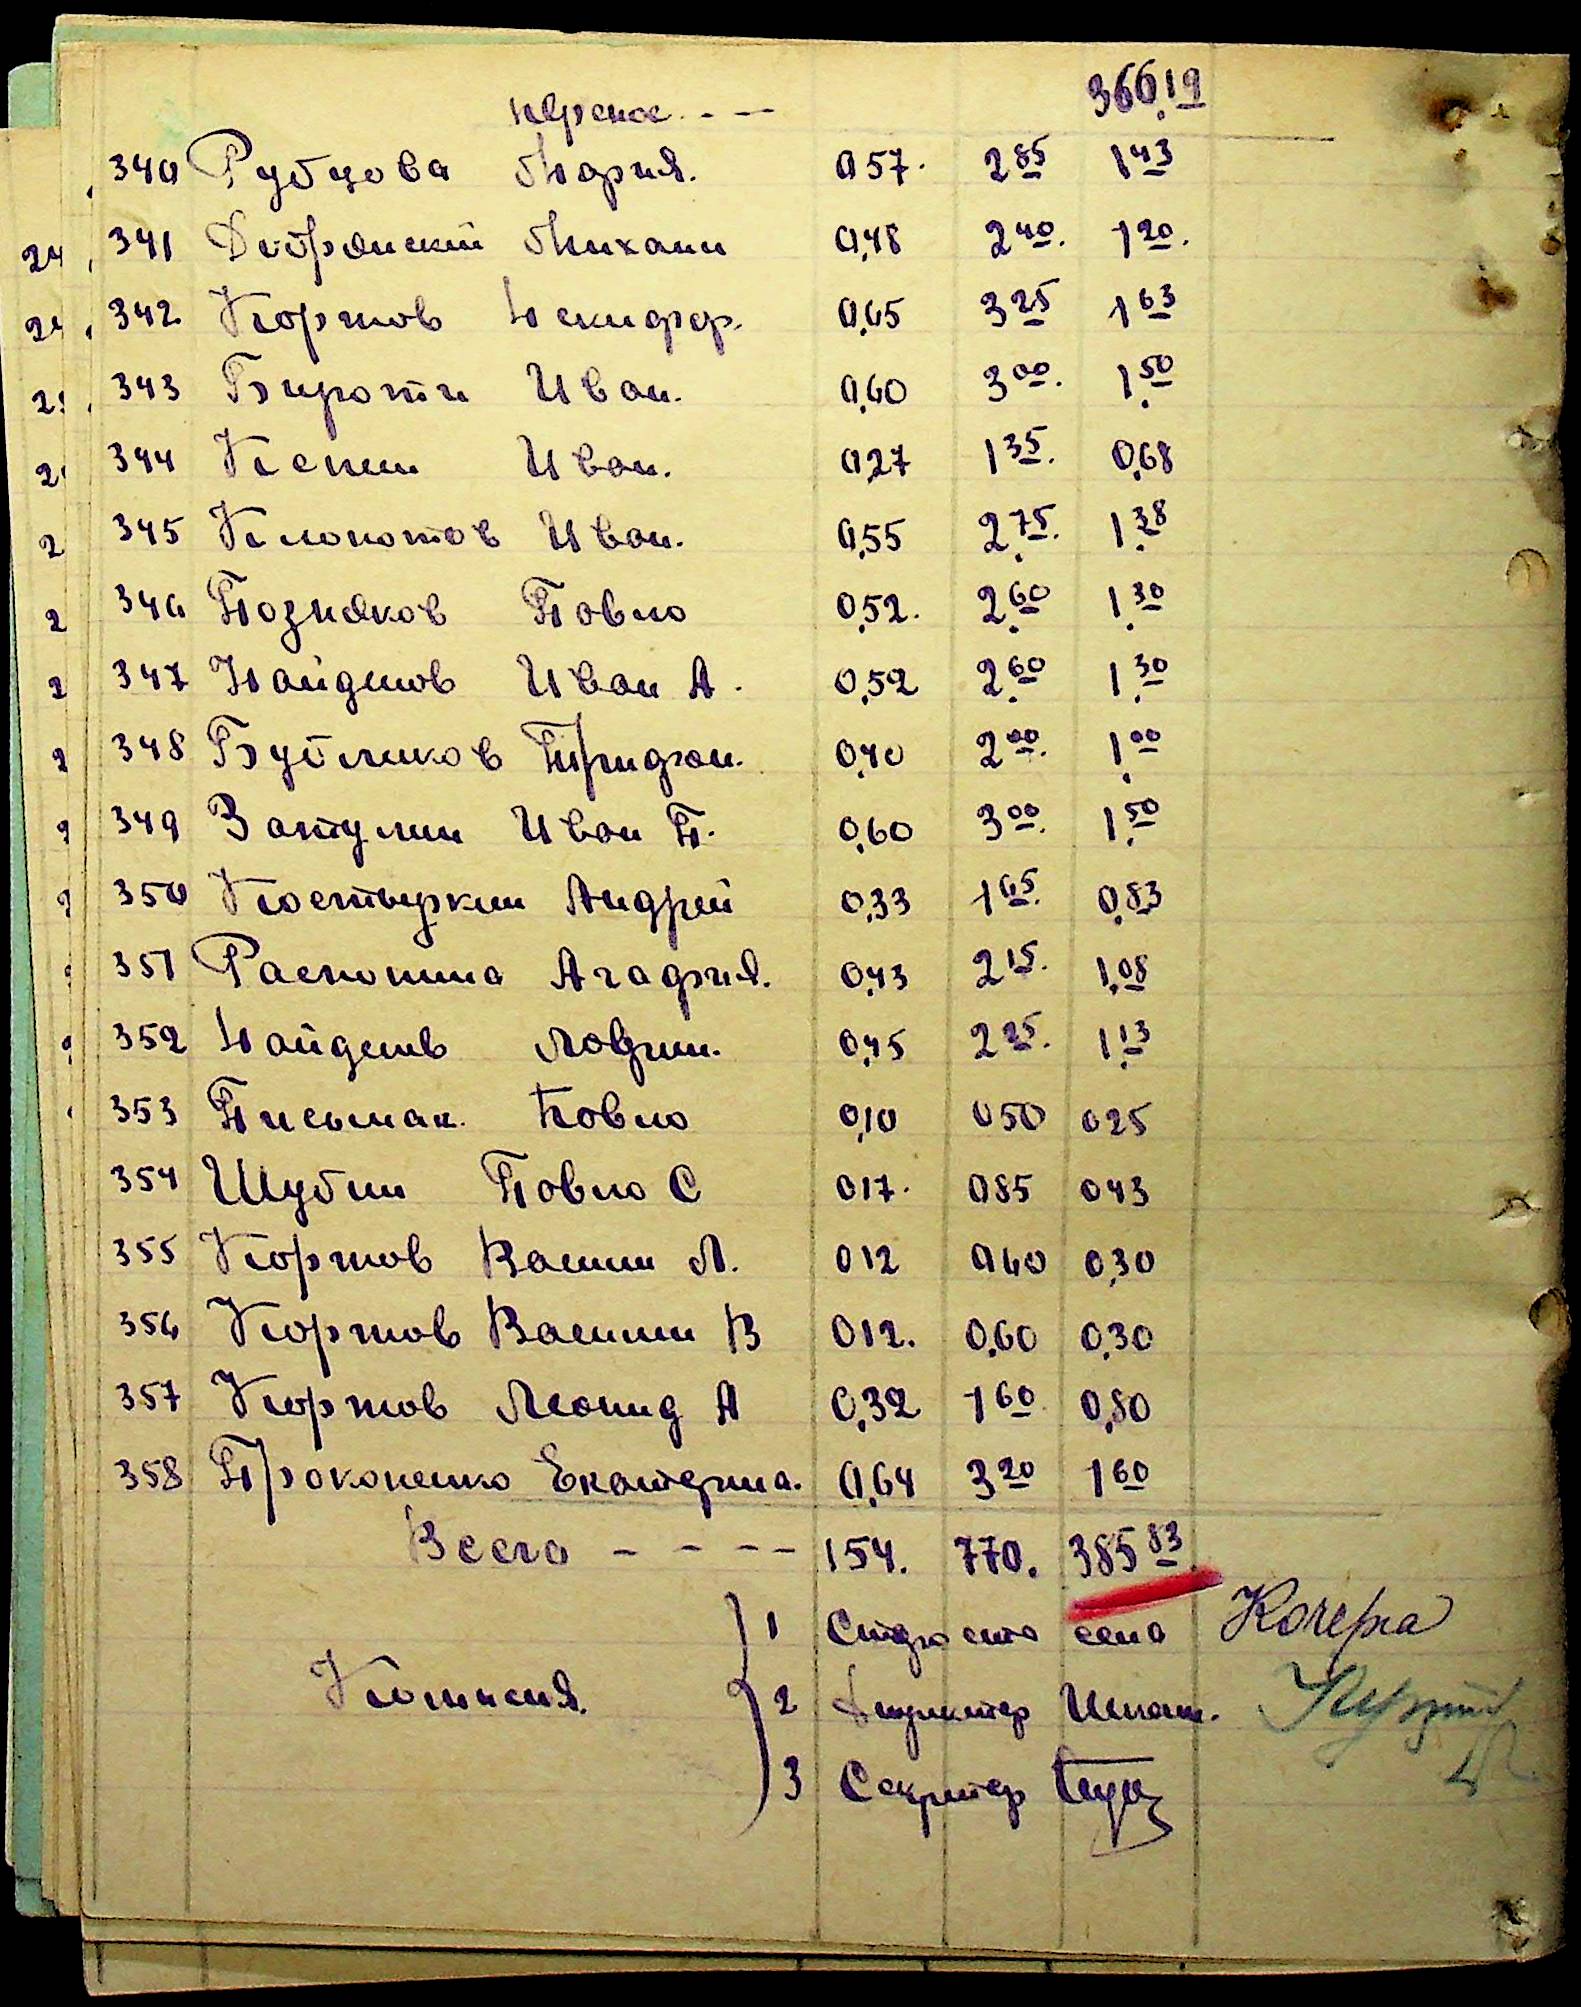 перенос - - — 366,19
340 Рубцова Мария. 0 57. 2 85 1 43
341 Добранский Михаил 0,48 2 40. 1 20.
342 Кортов Некифор. 0,65 3 25 1 63
343 Иван. 0,60 3 00. 1,50
344 Кепин Иван. 0,27 1 35. 0,68
345 Клопотов Иван. 0,55 2,75. 1,38
346 Позняков Павло 0,52. 2,60 1,30
347 Найденов Иван А. 0,52 2,60 1,30
348 Бубликов 0,40 2 00. 1,00
349 Затулин Иван П. 0,60 3 00. 1,50
350 Костыркин Андрей 0,33 1 65. 0,83
351 Распопина Агафия. 0,43 2 15. 1,08
352 Найденов Лаврин. 0,45 2 25. 1,13
353 Письмак. Павло 0,10 0 50 0 25
354 Шубин Павло С 0 17. 0 85 0 43
355 Кортов Васили Л. 0 12 0 60 0,30
356 Кортов Васили В 0 12. 0,60 0,30
357 Кортов Леонид А 0,32 1 60 0,80
358 Прокопенко Екатерина. 0,64 3 20 1 60
Всего - - - - 154. 770. 385 83
1 Староста села Кочерга
Комисия. 2 Директор Шкал.
3 Секретар